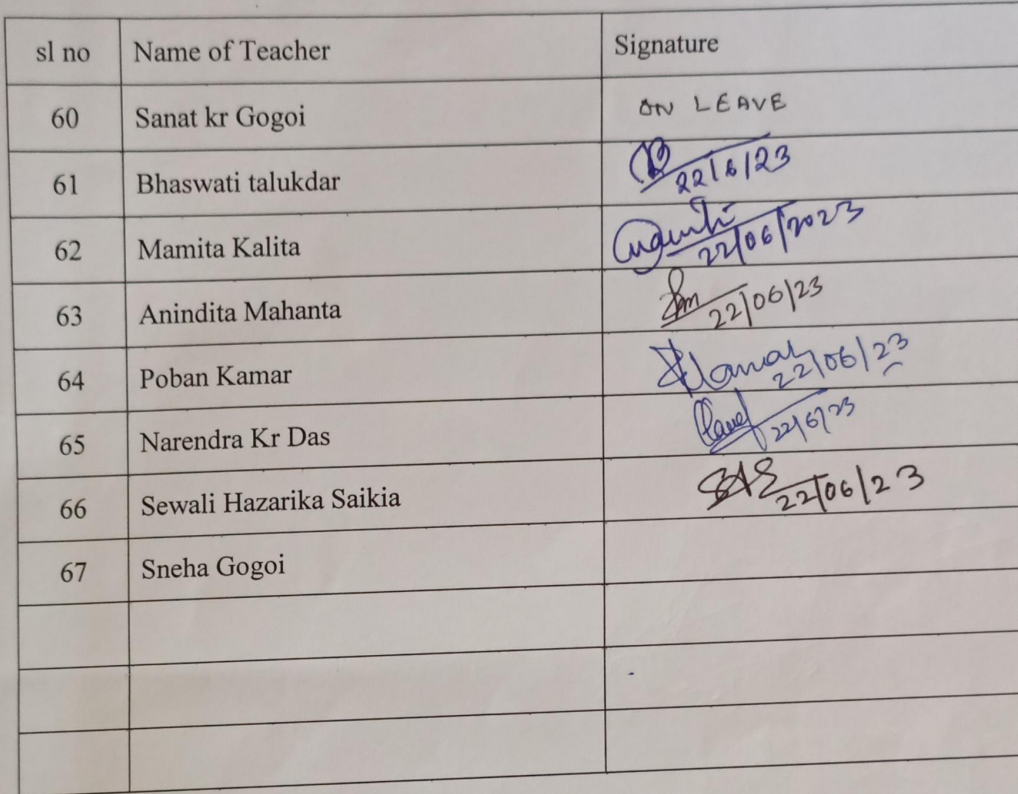 sl no Name of Teacher Signature
60 Sanat kr Gogoi ON LEAVE
61 Bhaswati talukdar 22/6/23
62 Mamita Kalita 22/06/2023
63 Anindita Mahanta 22/06/23
64 Poban Kamar 22/06/23
65 Narendra Kr Das 22/6/23
66 Sewali Hazarika Saikia 22/06/23
67 Sneha Gogoi